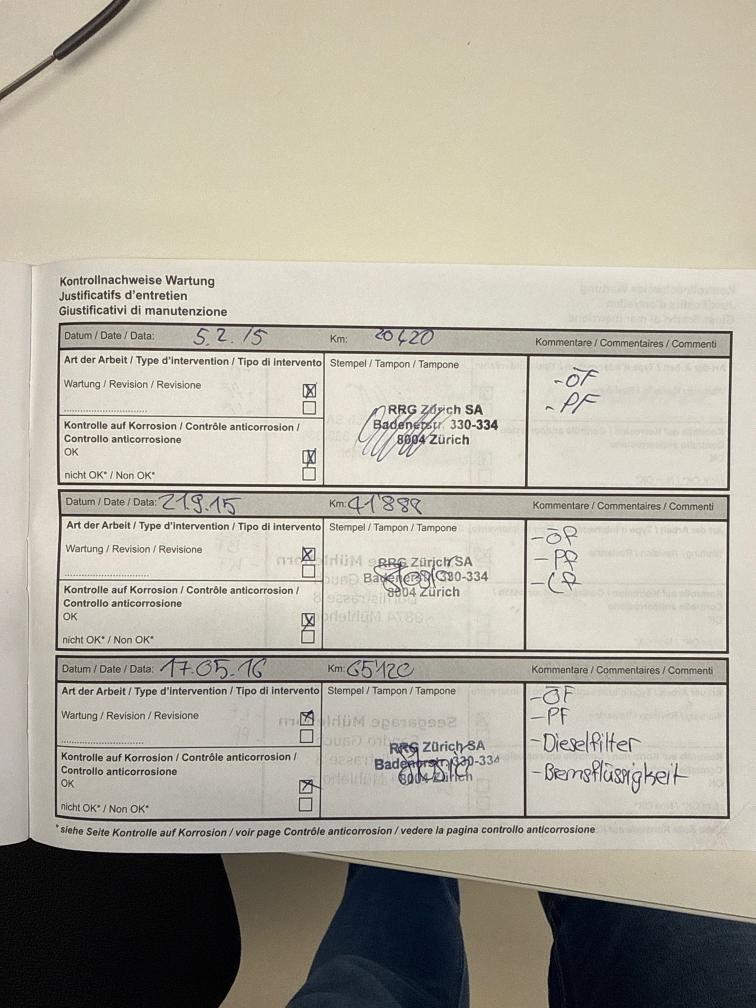 Kontrollnachweise Wartung
Justificatifs d'entretien
Giustificativi di manutenzione
Datum / Date / Data: 5.2.15 Km: 20420 Kommentare / Commentaires / Commenti
Art der Arbeit / Type d'intervention / Tipo di intervento Stempel / Tampon / Tampone
Wartung / Revision / Revisione
- ÖF
- PF
RRG Zürich SA
Badenerstr. 330-334
8004 Zürich
Kontrolle auf Korrosion / Contrôle anticorrosion /
Controllo anticorrosione
OK
nicht OK* / Non OK*
Datum / Date / Data: 21.9.15 Km: 41'888 Kommentare / Commentaires / Commenti
Art der Arbeit / Type d'intervention / Tipo di intervento Stempel / Tampon / Tampone
Wartung / Revision / Revisione
- ÖF
- PF
RRG Zürich SA
Badenerstr. 330-334
8004 Zürich
Kontrolle auf Korrosion / Contrôle anticorrosion /
Controllo anticorrosione
OK
nicht OK* / Non OK*
Datum / Date / Data: 17.05.16 Km: 65120 Kommentare / Commentaires / Commenti
Art der Arbeit / Type d'intervention / Tipo di intervento Stempel / Tampon / Tampone
Wartung / Revision / Revisione
- ÖF
- PF
- Dieselfilter
- Bremsflüssigkeit
RRG Zürich SA
Badenerstr. 330-334
8004 Zürich
Kontrolle auf Korrosion / Contrôle anticorrosion /
Controllo anticorrosione
OK
nicht OK* / Non OK*
*siehe Seite Kontrolle auf Korrosion / voir page Contrôle anticorrosion / vedere la pagina controllo anticorrosione